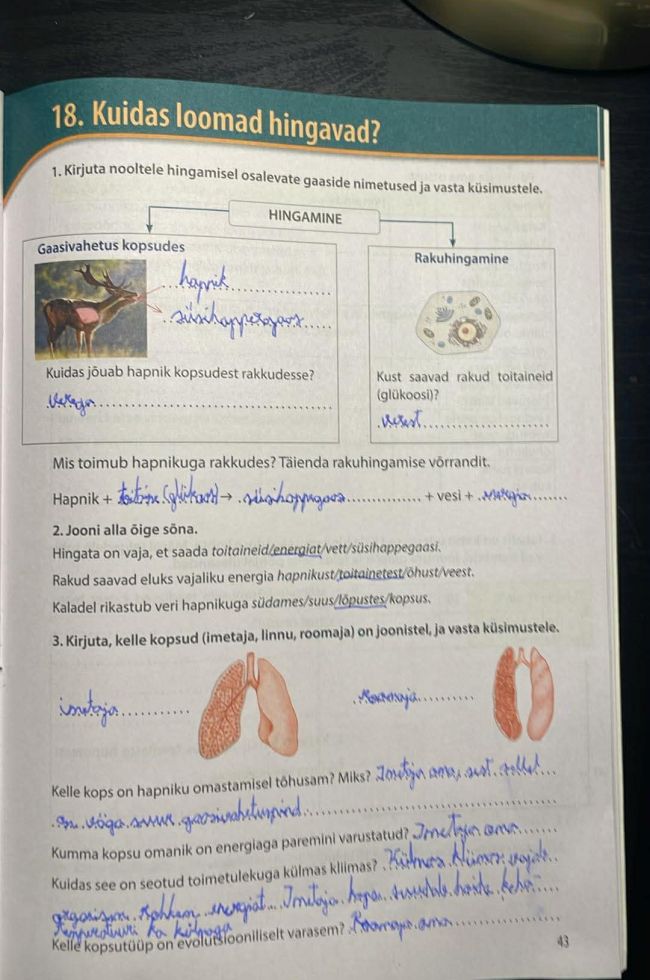 18. Kuidas loomad hingavad?
1. Kirjuta nooltele hingamisel osalevate gaaside nimetused ja vasta küsimustele.
HINGAMINE
Gaasivahetus kopsudes
hapnik
süsihappegaas
Kuidas jõuab hapnik kopsudest rakkudesse?
verega
Rakuhingamine
Kust saavad rakud toitaineid
(glükoosi)?
verest
Mis toimub hapnikuga rakkudes? Täienda rakuhingamise võrrandit.
Hapnik + toitaine (glükoos) → süsihappegaas + vesi + energia
2. Jooni alla õige sõna.
Hingata on vaja, et saada toitaineid/energiat/vett/süsihappegaasi.
Rakud saavad eluks vajaliku energia hapnikust/toitainetest/õhust/veest.
Kaladel rikastub veri hapnikuga südames/suus/lõpustes/kopsus.
3. Kirjuta, kelle kopsud (imetaja, linnu, roomaja) on joonistel, ja vasta küsimustele.
imetaja
roomaja
Kelle kops on hapniku omastamisel tõhusam? Miks? Imetaja oma, sest sellel
on väga suur gaasivahetuspind
Kumma kopsu omanik on energiaga paremini varustatud? Imetaja oma
Kuidas see on seotud toimetulekuga külmas kliimas? Külmas kliimas vajab
organism rohkem energiat. Imetaja hoida keha
temperatuuri ka külmaga
Kelle kopsutüüp on evolutsiooniliselt varasem? Roomaja oma
43